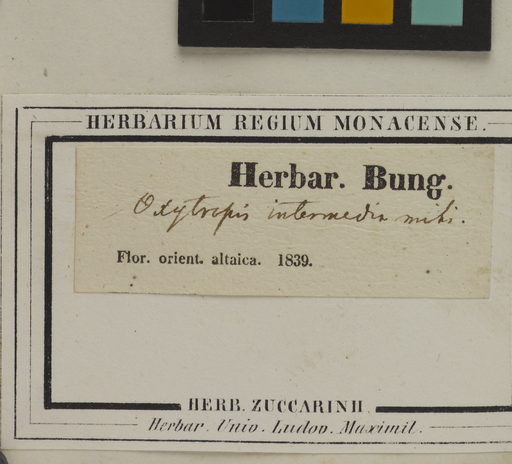 HERBARIUM REGIUM MONACENSE.
Herbar. Bung.
Oxytropis intermedia mihi.
Flor. orient. altaica. 1839.
HERB. ZUCCARINII.
Herbar. Univ. Ludov. Maximil.